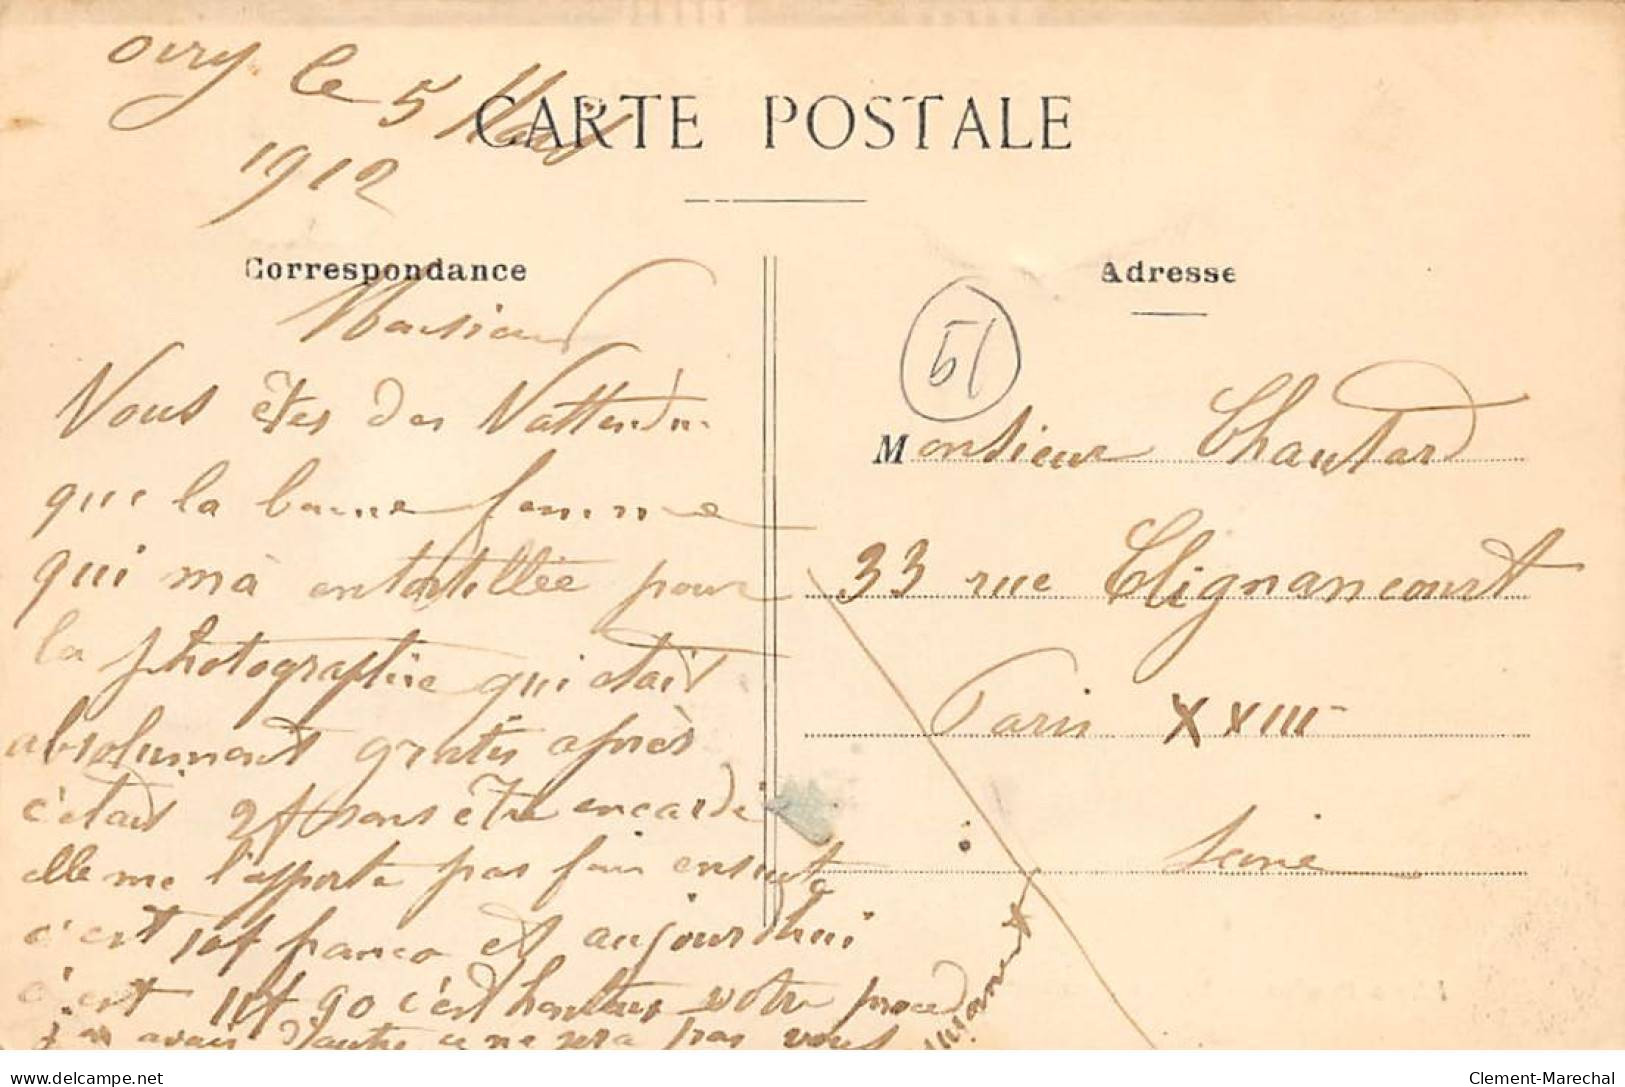 Oiry le 5 Mars
1912
CARTE POSTALE
Correspondance
Monsieur
Vous êtes des
que la bonne femme
qui ma entortillée pour
la photographie qui était
absolument gratis après
c'était 2f sans être encardé
elle me l'apporte pas fair ensuite
c'est 10f franco et aujourdhui
c'est 11f 90 c'est honteux votre procedé
j'en avais d'autre ce ne sera pas vous
Adresse
51
Monsieur Chautard
33 rue Clignancourt
Paris XXIII
Seine
delcampe.net
Clement-Marechal